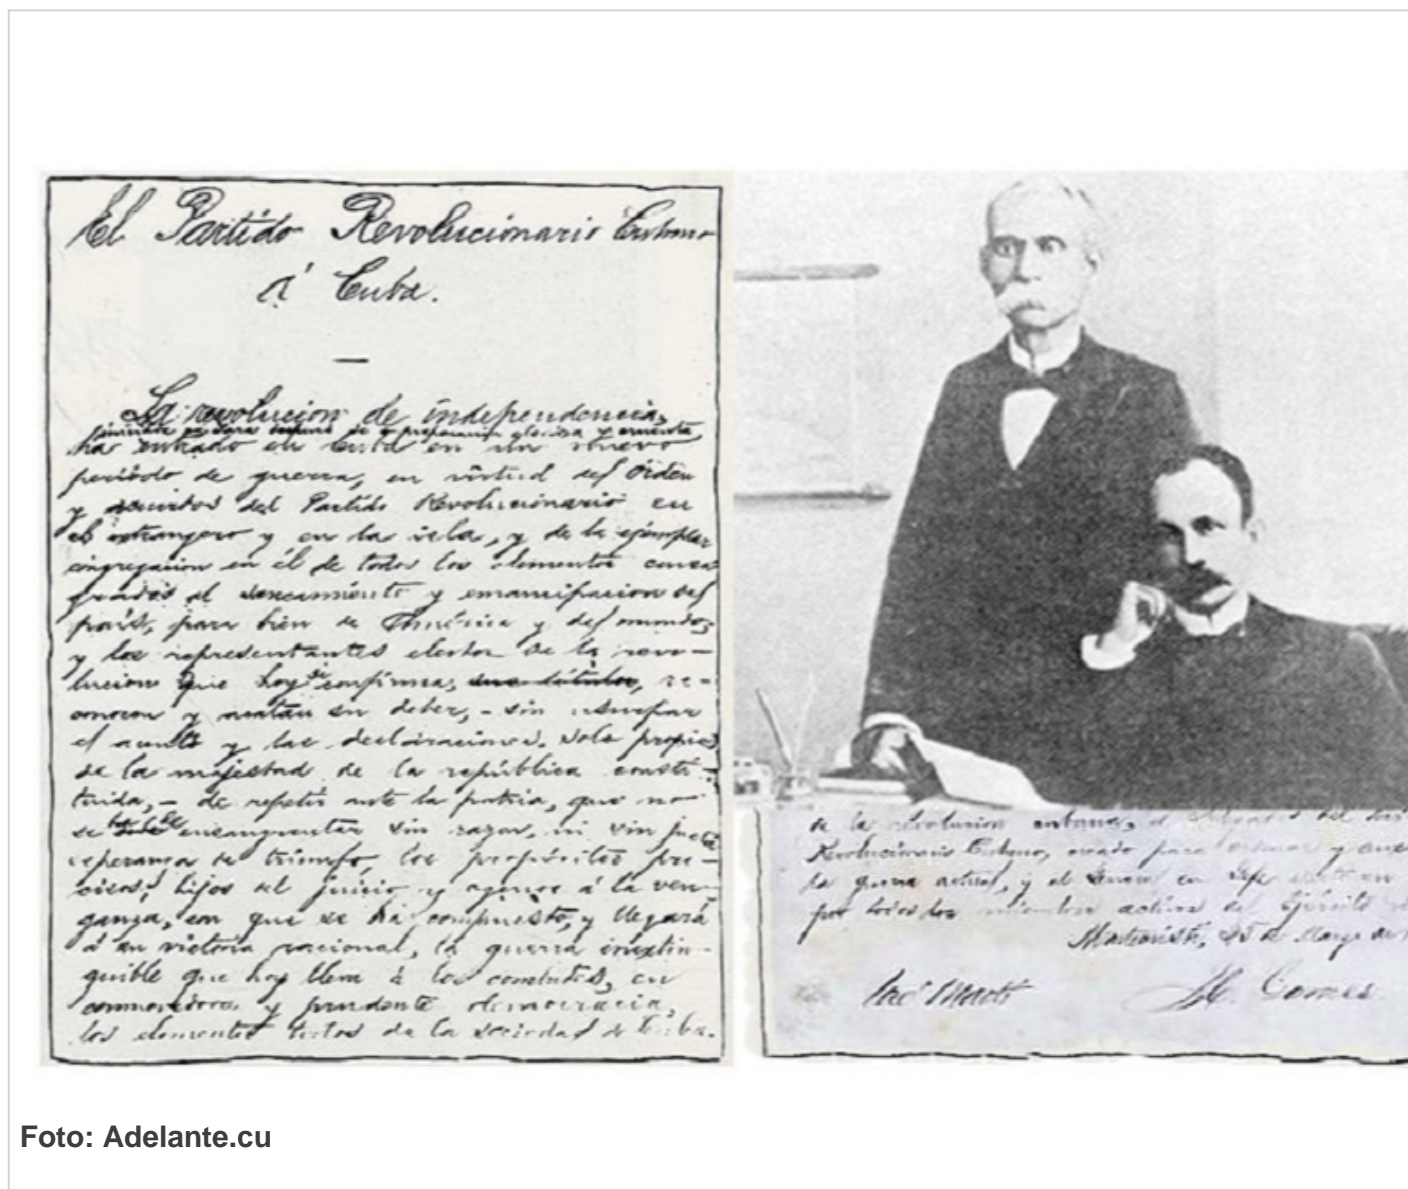 El Partido Revolucionario Cubano
á Cuba.
La revolucion de independencia,
iniciada en Yara despues de preparacion gloriosa y cruenta,
ha entrado en Cuba en un nuevo
período de guerra, en virtud del órden
y acuerdos del Partido Revolucionario en
el extrangero y en la isla, y de la ejemplar
congregacion en él de todos los elementos consa
grados al saneamiento y emancipacion del
país, para bien de América y del mundo;
y los representantes electos de la revo-
lucion que hoy se confirma, re-
conocen y acatan su deber, - sin usurpar
el acento y las declaraciones solo propias
de la majestad de la república consti-
tuida, - de repetir ante la patria, que no
se ha de ensangrentar sin razon, ni sin justa
esperanza de triunfo, los propósitos pre-
cisos, hijos del juicio y agenos á la ven-
ganza, con que se ha compuesto, y llegará
á su victoria racional, la guerra inextin-
guible que hoy lleva á los combates, en
conmovedora y prudente democracia,
los elementos todos de la sociedad de Cuba.
de la revolucion cubana, el Delegado del
Revolucionario Cubano, creado para ordenar y
la guerra actual, y el General en Jefe electo en
por todos los miembros activos del Ejército
Montecristi, 25 de Marzo de
José Martí
M. Gomez
Foto: Adelante.cu